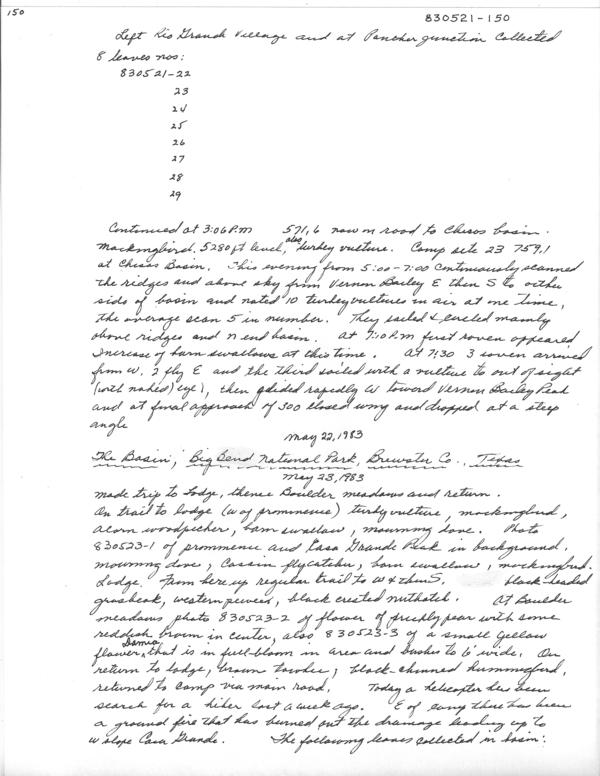 150
830521-150
Left Rio Grande Village and at Panther Junction collected
8 leaves nos:
830521-22
23
24
25
26
27
28
29
Continued at 3:06 P.m 571,6 now on road to Chisos basin.
mockingbird. 5280 ft level, also turkey vulture. Camp site 23 759.1
at Chisos Basin. This evening from 5:00-7:00 continuously scanned
the ridges and above sky from Vernon Bailey E then S to other
side of basin and noted 10 turkey vultures in air at one time,
the average seen 5 in number. They sailed & circled mainly
above ridges and n end basin. At 7:10 P.m first raven appeared
Increase of barn swallows at this time. At 7:30 3 raven arrived
from W. 2 fly E and the third sailed with a vulture to out of sight
(with naked eye), then glided rapidly W toward Vernon Bailey Peak
and at final approach of 300 closed wing and dropped at a steep
angle
may 22, 1983
The Basin, Big Bend National Park, Brewster Co., Texas
May 23, 1983
made trip to Lodge, thence Boulder meadows and return.
On trail to lodge (W of prominence) turkey vulture, mockingbird,
acorn woodpecker, barn swallow, mourning dove. Photo
830523-1 of prominence and Casa Grande Peak in background.
mourning dove, Cassin flycatcher, barn swallow, mockingbird.
Lodge. From here up regular trail to W & then S. black headed
grosbeak, western peewee, black crested nuthatch. At Boulder
meadows photo 830523-2 of flower of prickly pear with some
reddish brown in center, also 830523-3 of a small yellow
flower, Damia that is in full bloom in area and bushes to 6' wide. On
return to lodge, brown towhee, black-chinned hummingbird,
returned to camp via main road. Today a helicopter has been
search for a hiker lost a week ago. E of camp there has been
a ground fire that has burned out the drainage leading up to
W slope Casa Grande. The following leaves collected in basin: